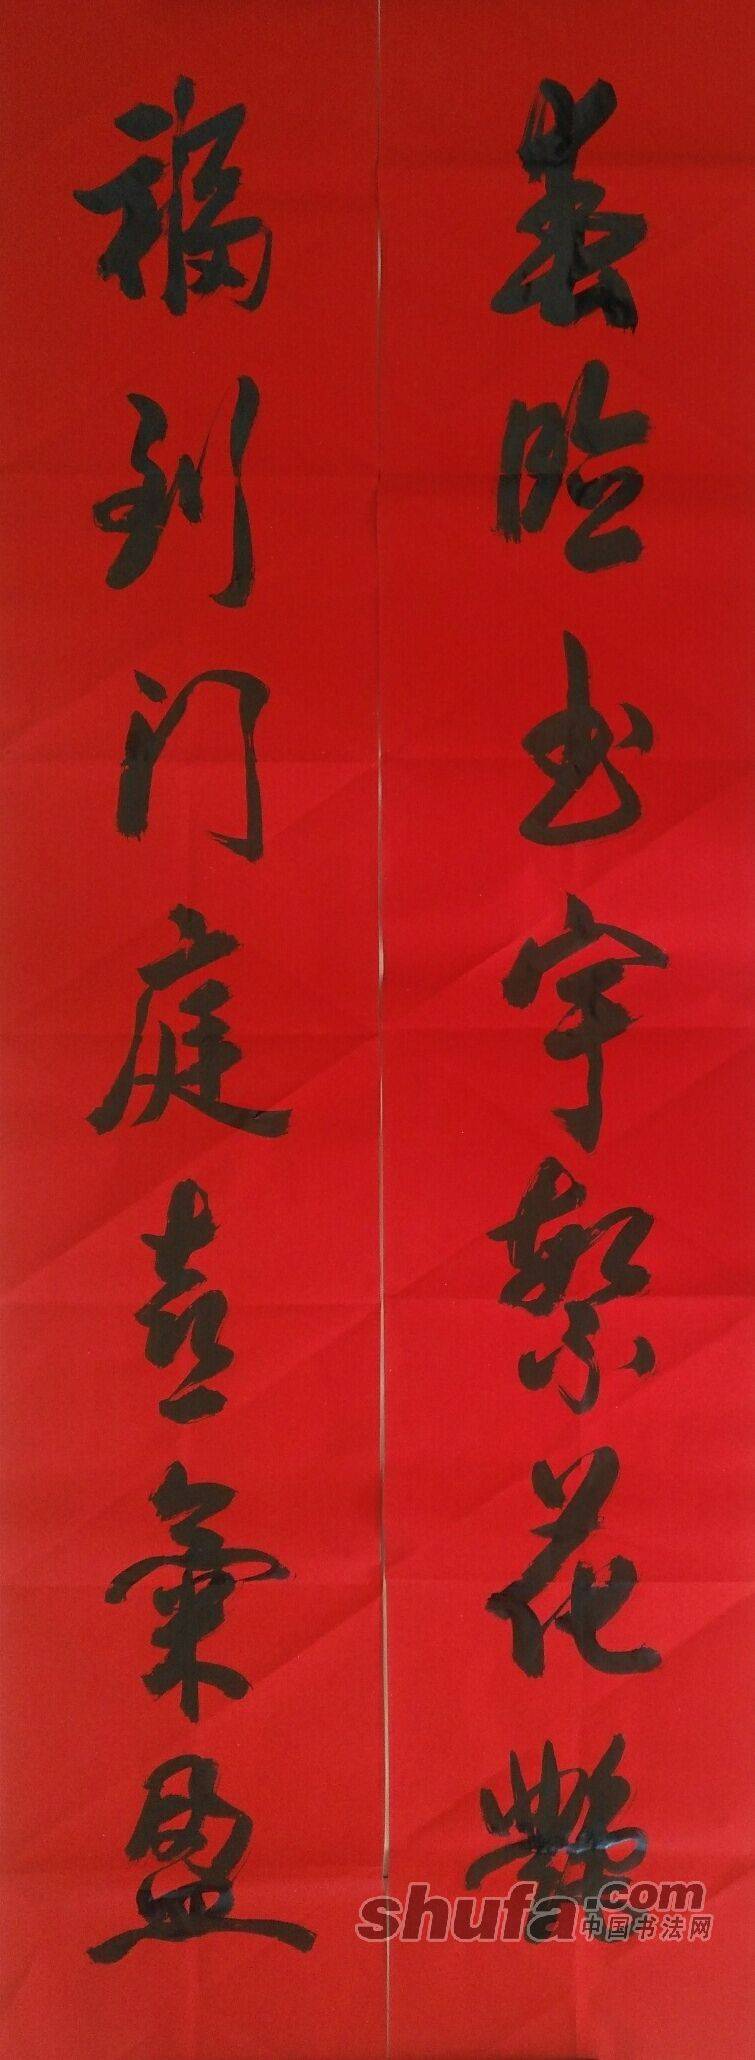 春臨玉宇繁花艷
福到门庭喜氣盈
shufa.com
中国书法网